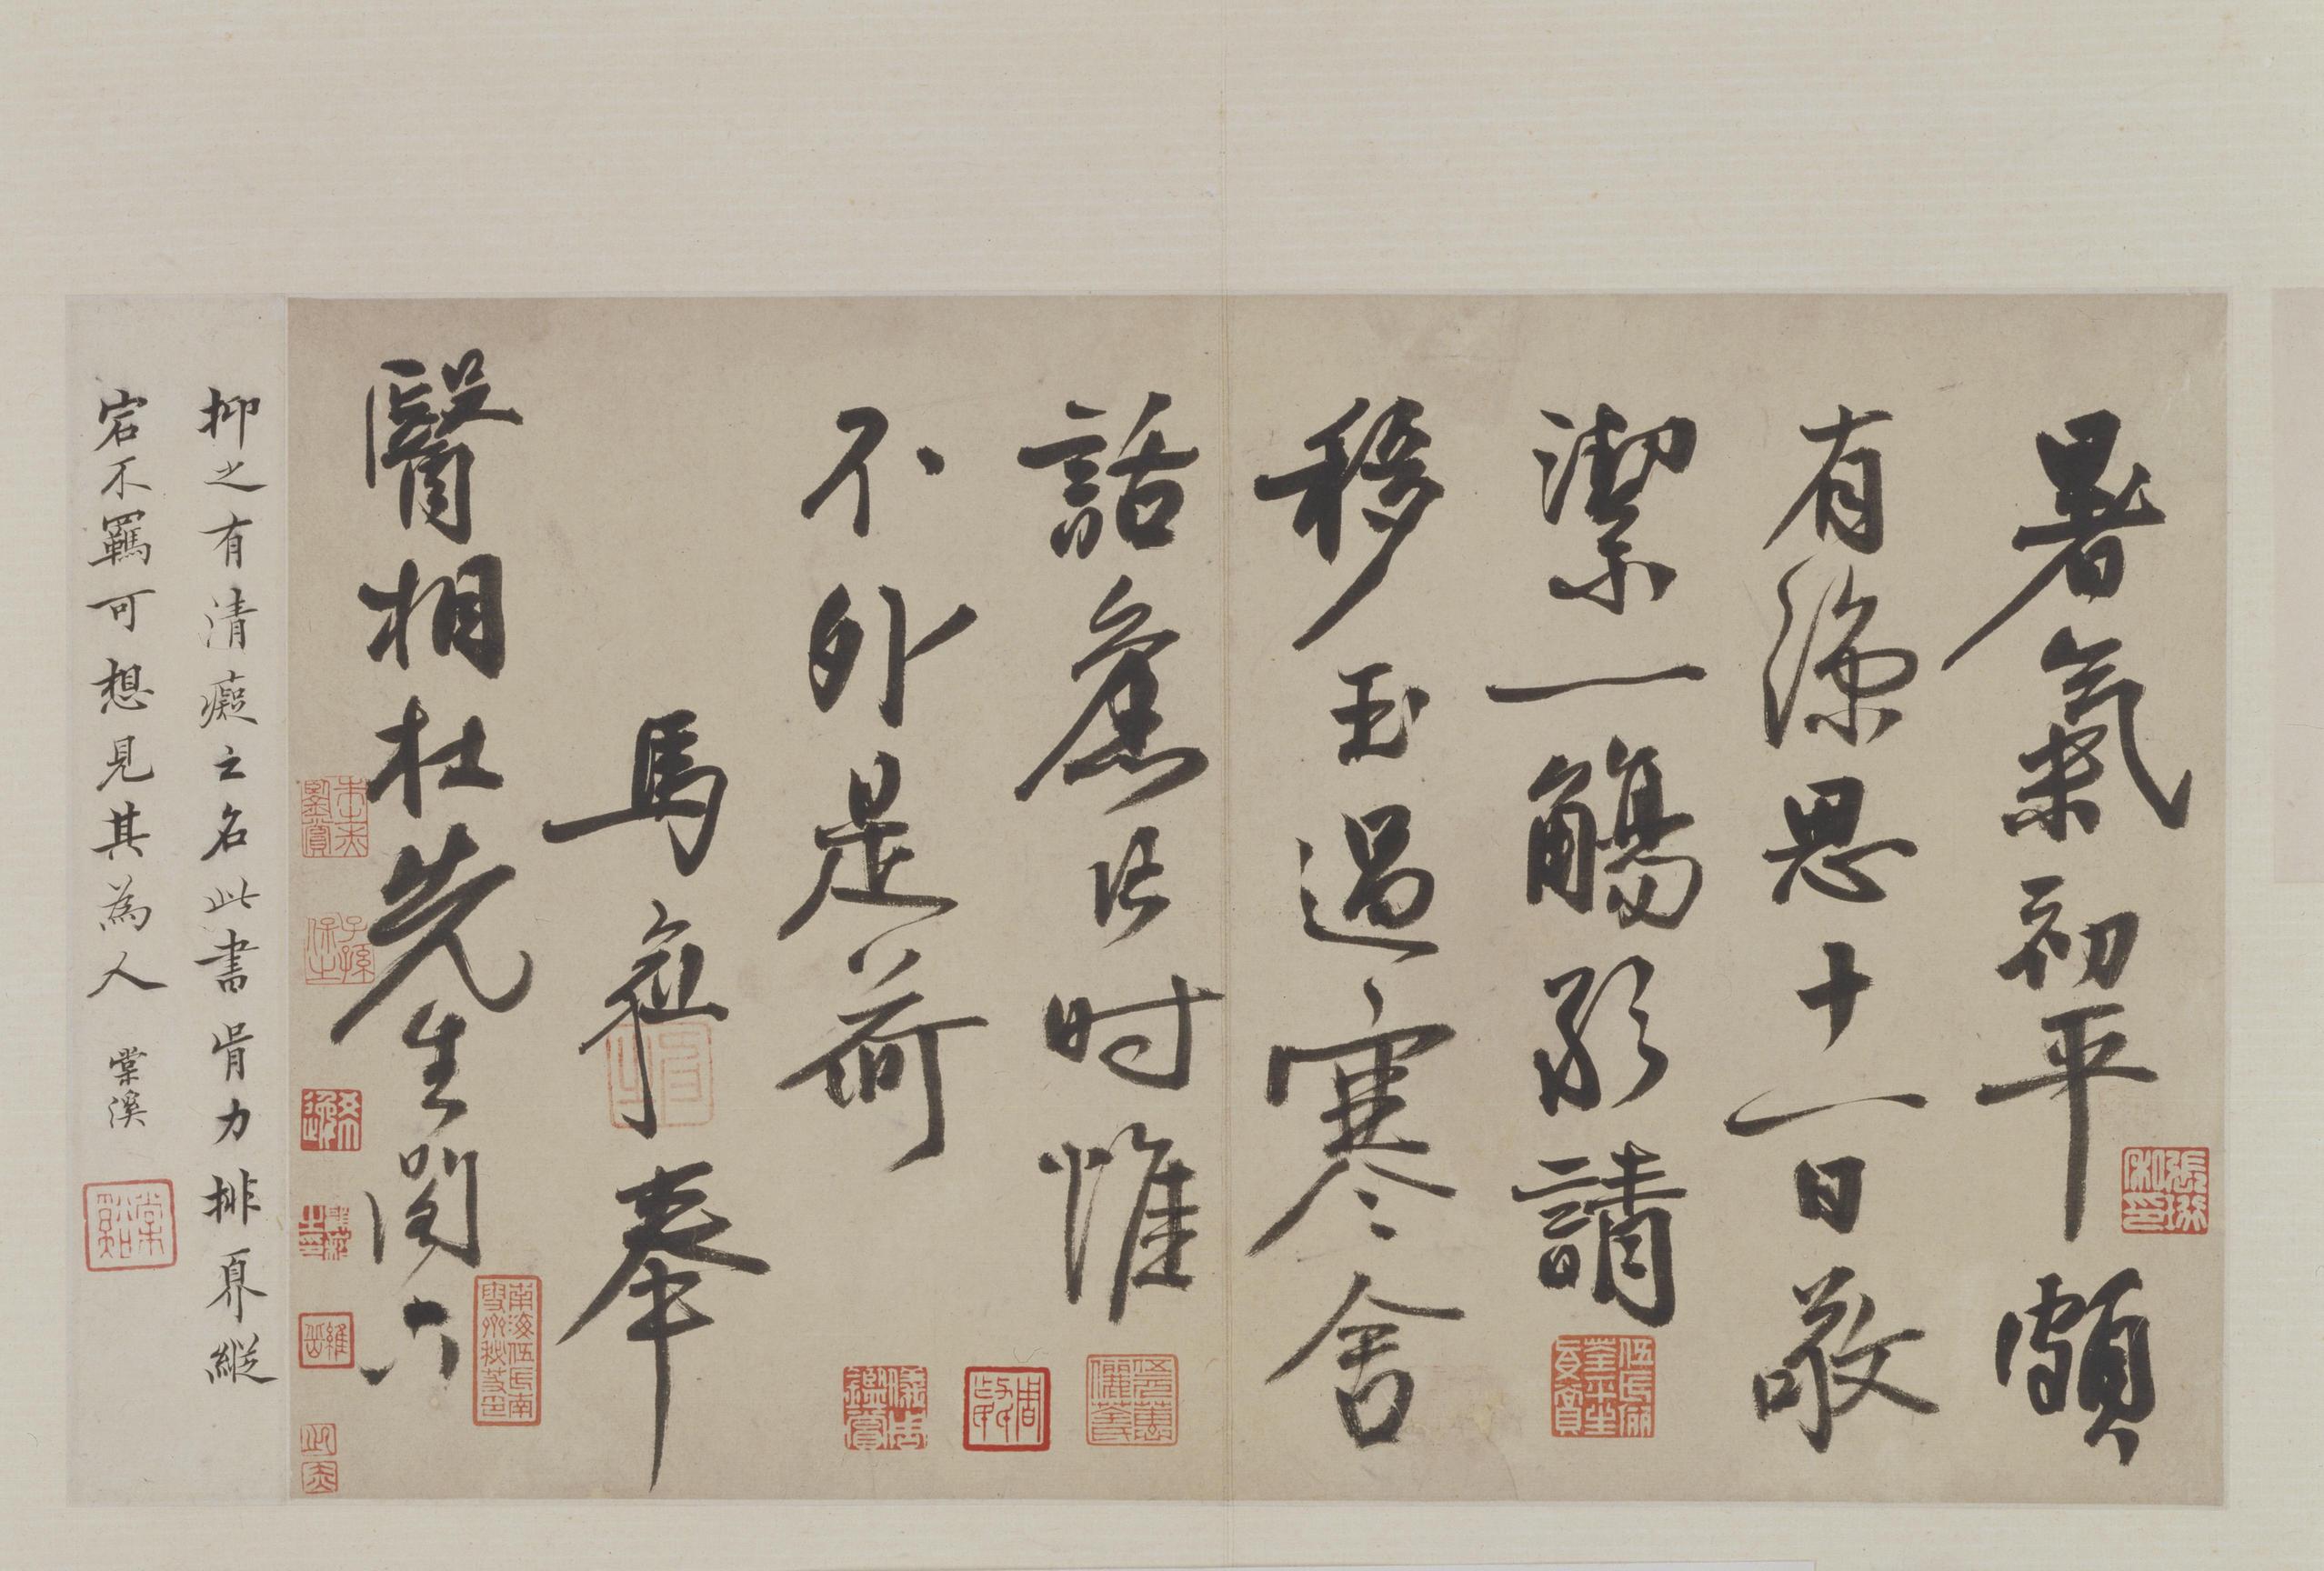 暑氣初平頗
有涼思十一日敬
潔一觴致請
移玉過寒舍
話舊片時惟
不外是荷
馬愈奉
醫相杜先生閣下
抑之有清癡之名此書骨力排奡縱
宕不羈可想見其為人 棠溪